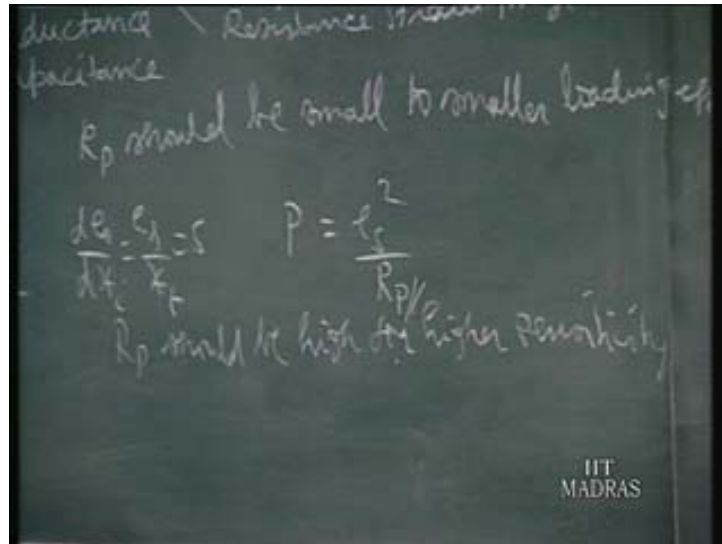 ductance \ Resistance strain
pacitance
Rp should be small to smaller loading eff
de₁/dx_t = e₁/x_t = S P = e_s²/Rp//
Rp should be high for higher sensitivity
IIT
MADRAS